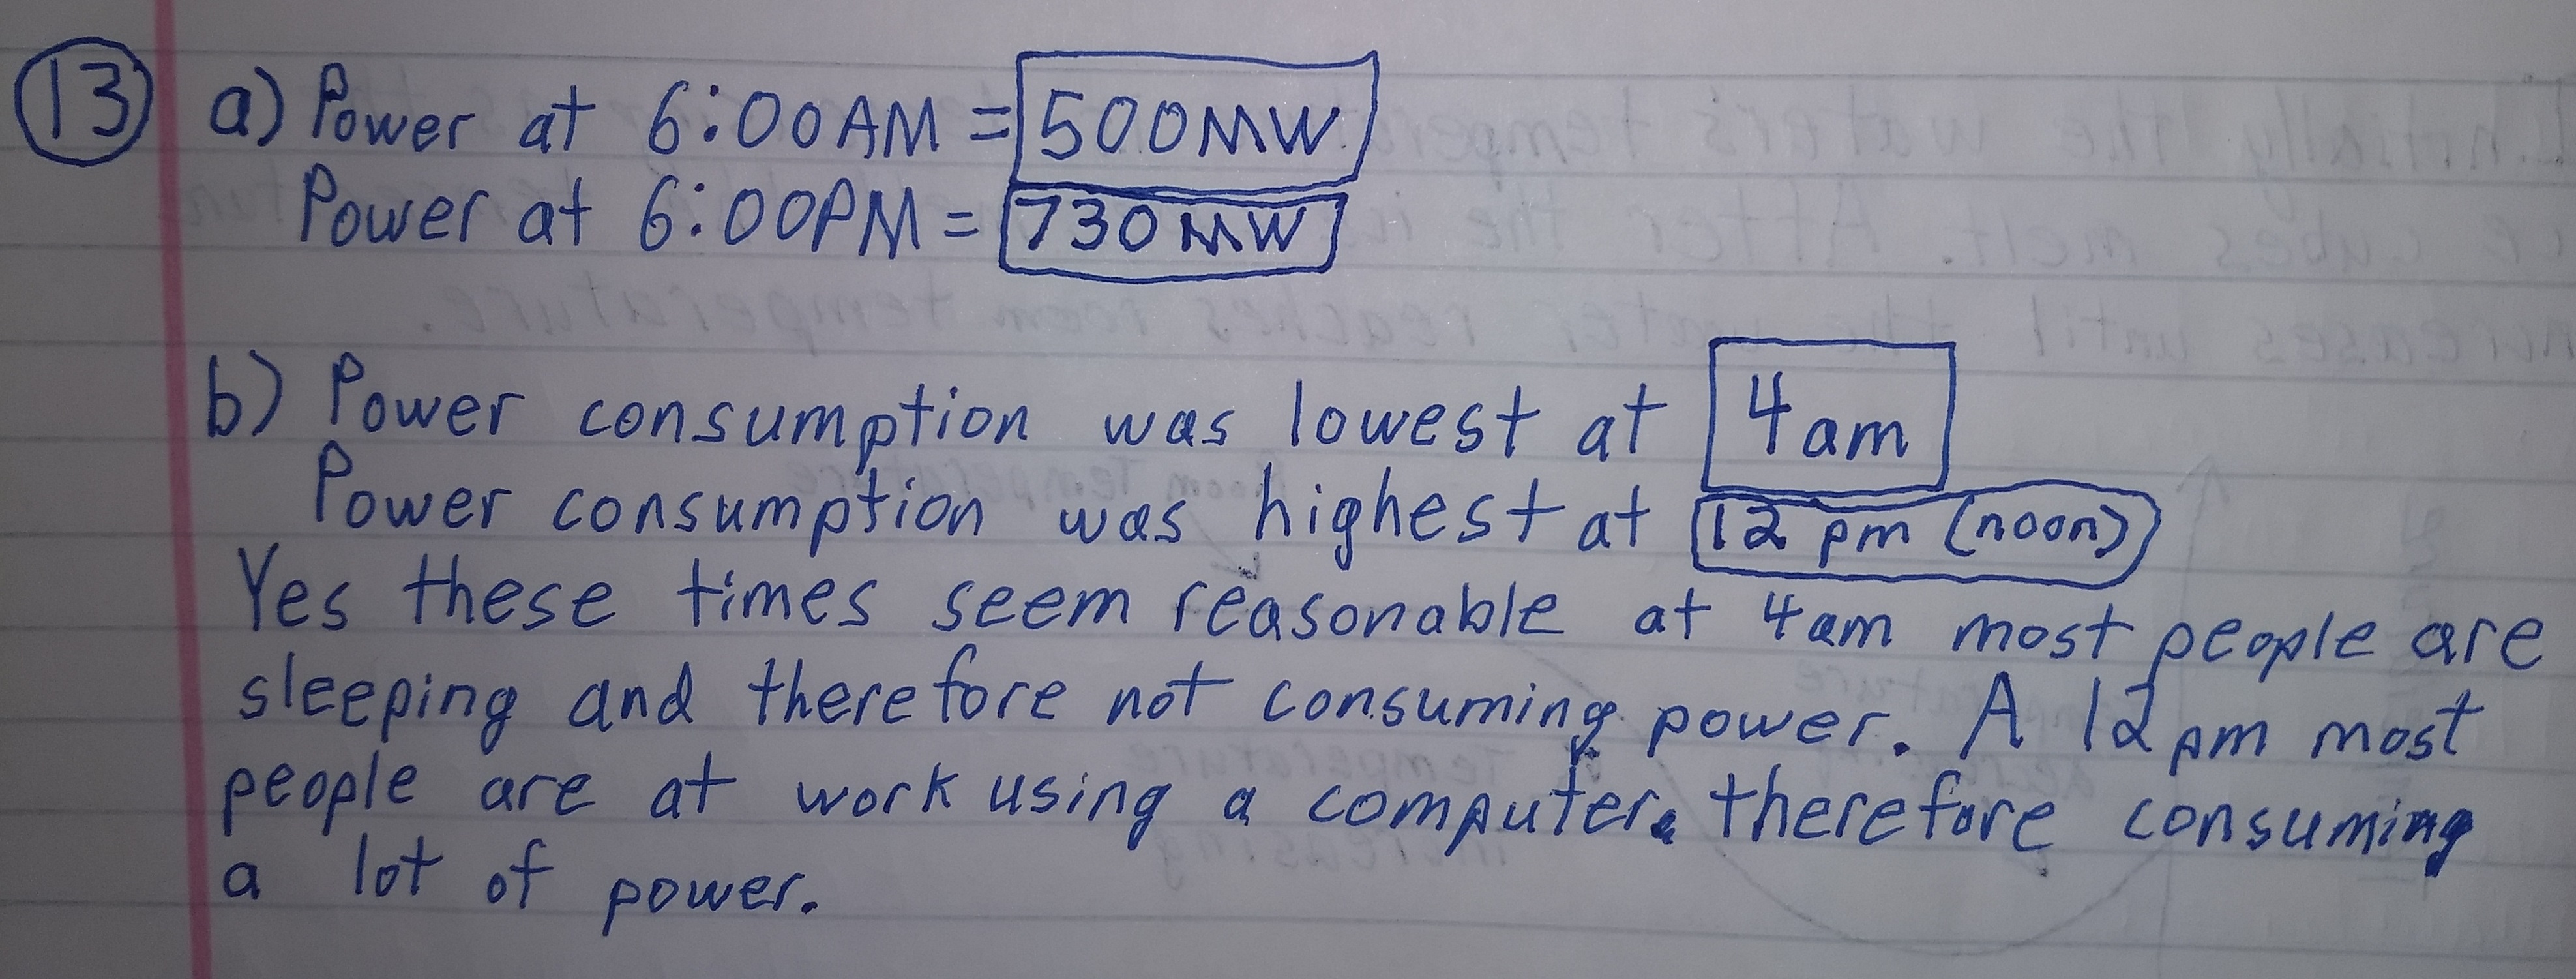 13 a) Power at 6:00AM = 500MW
Power at 6:00PM = 730MW
b) Power consumption was lowest at 4am
Power consumption was highest at 12 pm (noon)
Yes these times seem reasonable at 4am most people are
sleeping and therefore not consuming power. A 12pm most
people are at work using a computer. therefore consuming
a lot of power.